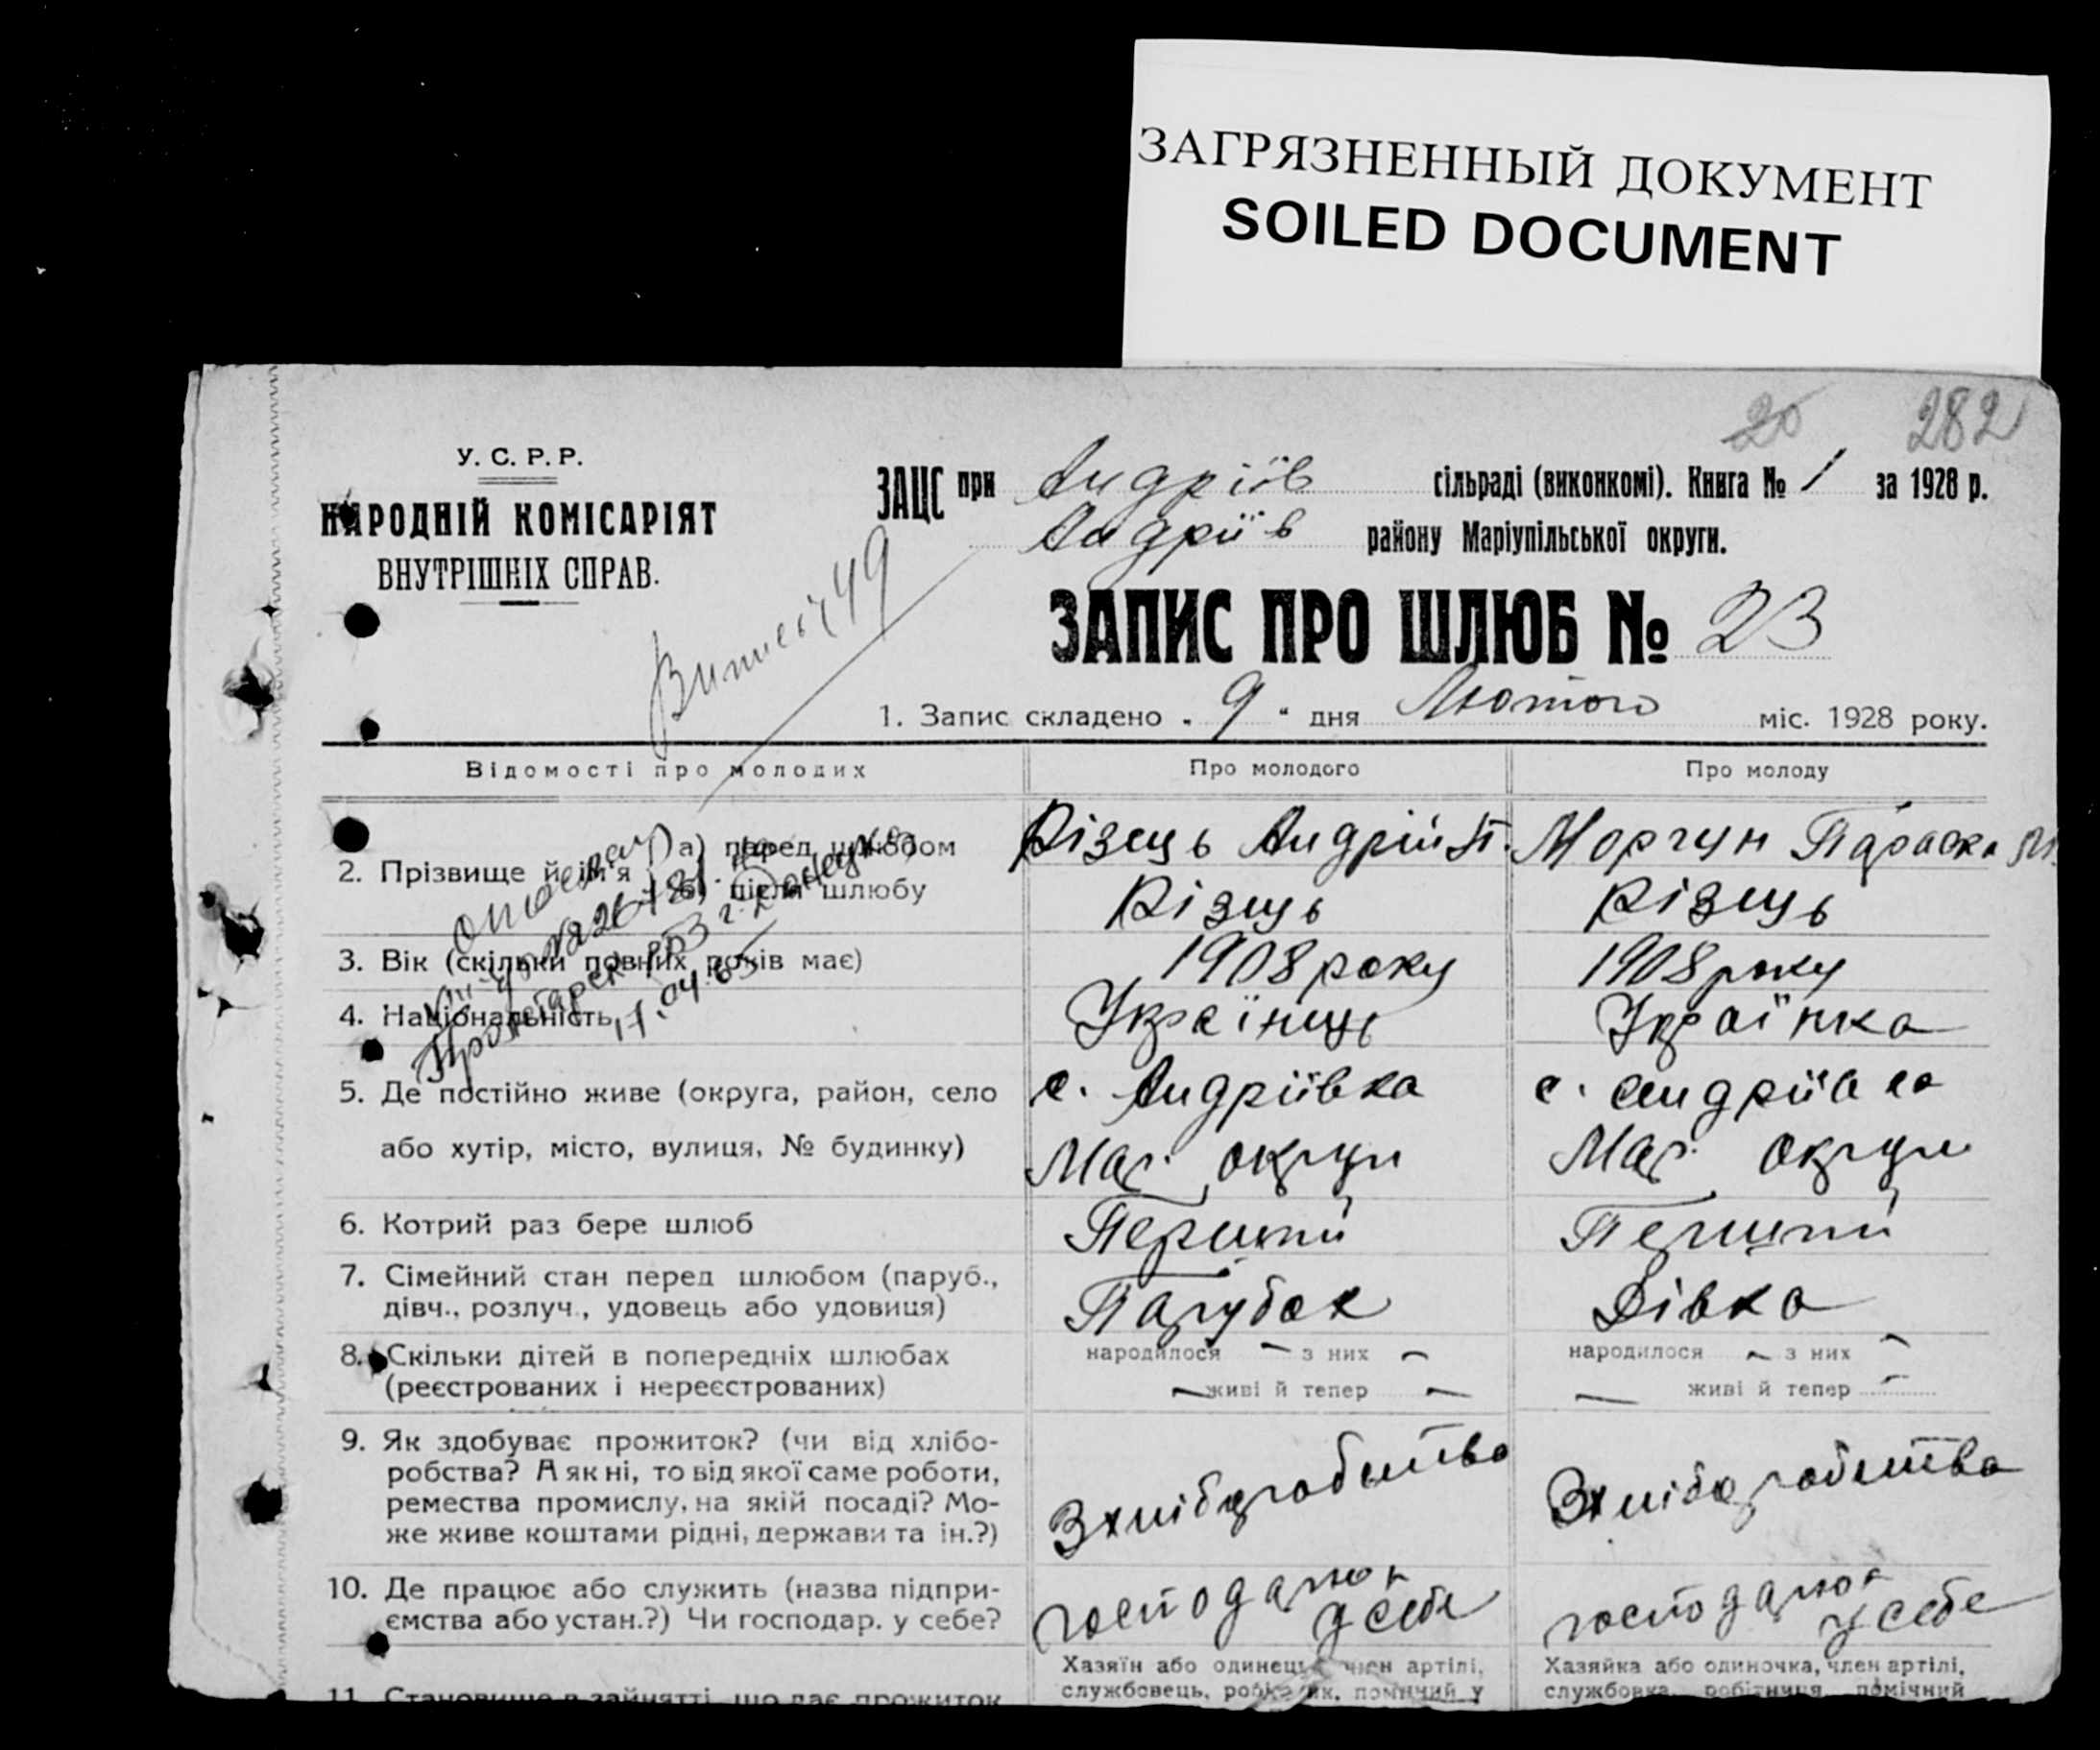 ЗАГРЯЗНЕННЫЙ ДОКУМЕНТ
SOILED DOCUMENT
20 282
У. С. Р. Р.
НАРОДНІЙ КОМІСАРІЯТ
ВНУТРІШНІХ СПРАВ.
ЗАЦС при Андріїв сільраді (виконкомі). Книга № 1 за 1928 р.
Андріїв району Маріупільської округи.
ЗАПИС ПРО ШЛЮБ № 23
1. Запис складено „ 9 “ дня Лютого міс. 1928 року.
Відомості про молодих Про молодого Про молоду
2. Прізвище й ім'я а) перед шлюбом Різець Андрій П. Моргун Параска М.
б) після шлюбу Різець Різець
3. Вік (скільки повних років має) 1908 року 1908 року
4. Національність Українець Українка
17.04.65
5. Де постійно живе (округа, район, село с. Андріївка с. Андріївка
або хутір, місто, вулиця, № будинку) Мар. округи Мар. округи
6. Котрий раз бере шлюб Перший Перший
7. Сімейний стан перед шлюбом (паруб., Парубок Дівка
дівч., розлуч., удовець або удовиця)
8. Скільки дітей в попередніх шлюбах народилося – з них – народилося – з них –
(реєстрованих і нереєстрованих) – живі й тепер – – живі й тепер –
9. Як здобуває прожиток? (чи від хлібо-
робства? А як ні, то від якої саме роботи, З хліборобства З хліборобства
ремества промислу, на якій посаді? Мо-
же живе коштами рідні, держави та ін.?)
10. Де працює або служить (назва підпри-
ємства або устан.?) Чи господар. у себе? у себе у себе
Хазяїн або одинець, член артілі, Хазяйка або одиночка, член артілі,
службовець, робітник, помічний у службовка, робітниця, помічний
11. Становище в зайнятті, що дає прожиток